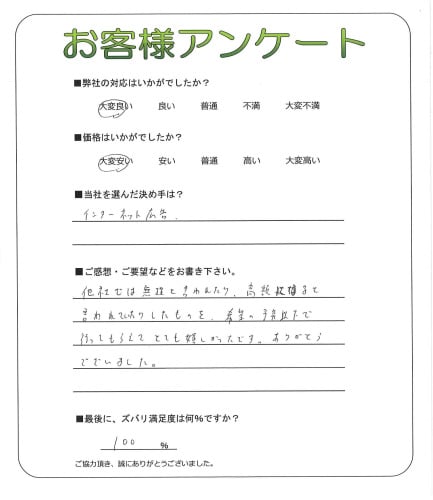 お客様アンケート
■弊社の対応はいかがでしたか？
大変良い 良い 普通 不満 大変不満
■価格はいかがでしたか？
大変安い 安い 普通 高い 大変高い
■当社を選んだ決め手は？
インターネット広告．
■ご感想・ご要望などをお書き下さい。
他社では無理と言われたり、高額 まで
言われていたりしたものを、希望の予算 で
行ってもらえて とても嬉しかったです。ありがとう
ございました。
■最後に、ズバリ満足度は何%ですか？
100 %
ご協力頂き、誠にありがとうございました。